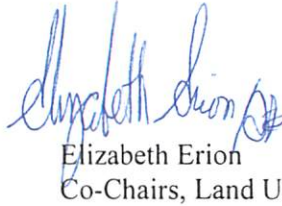 Elizabeth Erion
Elizabeth Erion
Co-Chairs, Land U